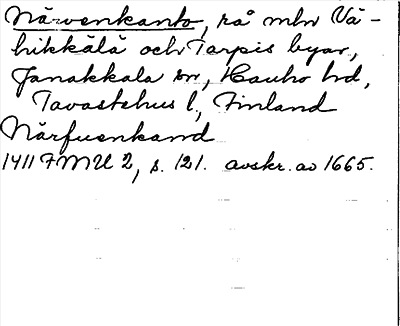 Närvenkanto, rå mln Vä-
hikkälä och Tarpis byar,
Janakkala sn, Hauho hd,
Tavastehus l, Finland
Närfuenkand
1411 FMU 2, s. 121. avskr. av 1665.